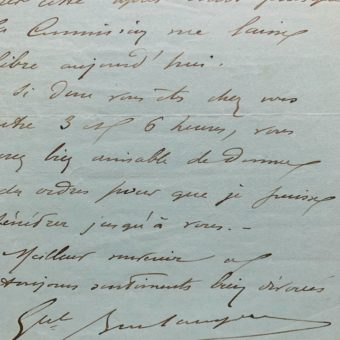 la Commission me laisse
libre aujourd'hui.
Si donc vous êtes chez vous
entre 3 et 6 heures, vous
serez bien aimable de donner
des ordres pour que je puisse
pénétrer jusqu'à vous. –
Meilleur souvenir et
toujours sentiments bien dévoués
Gve Boulanger